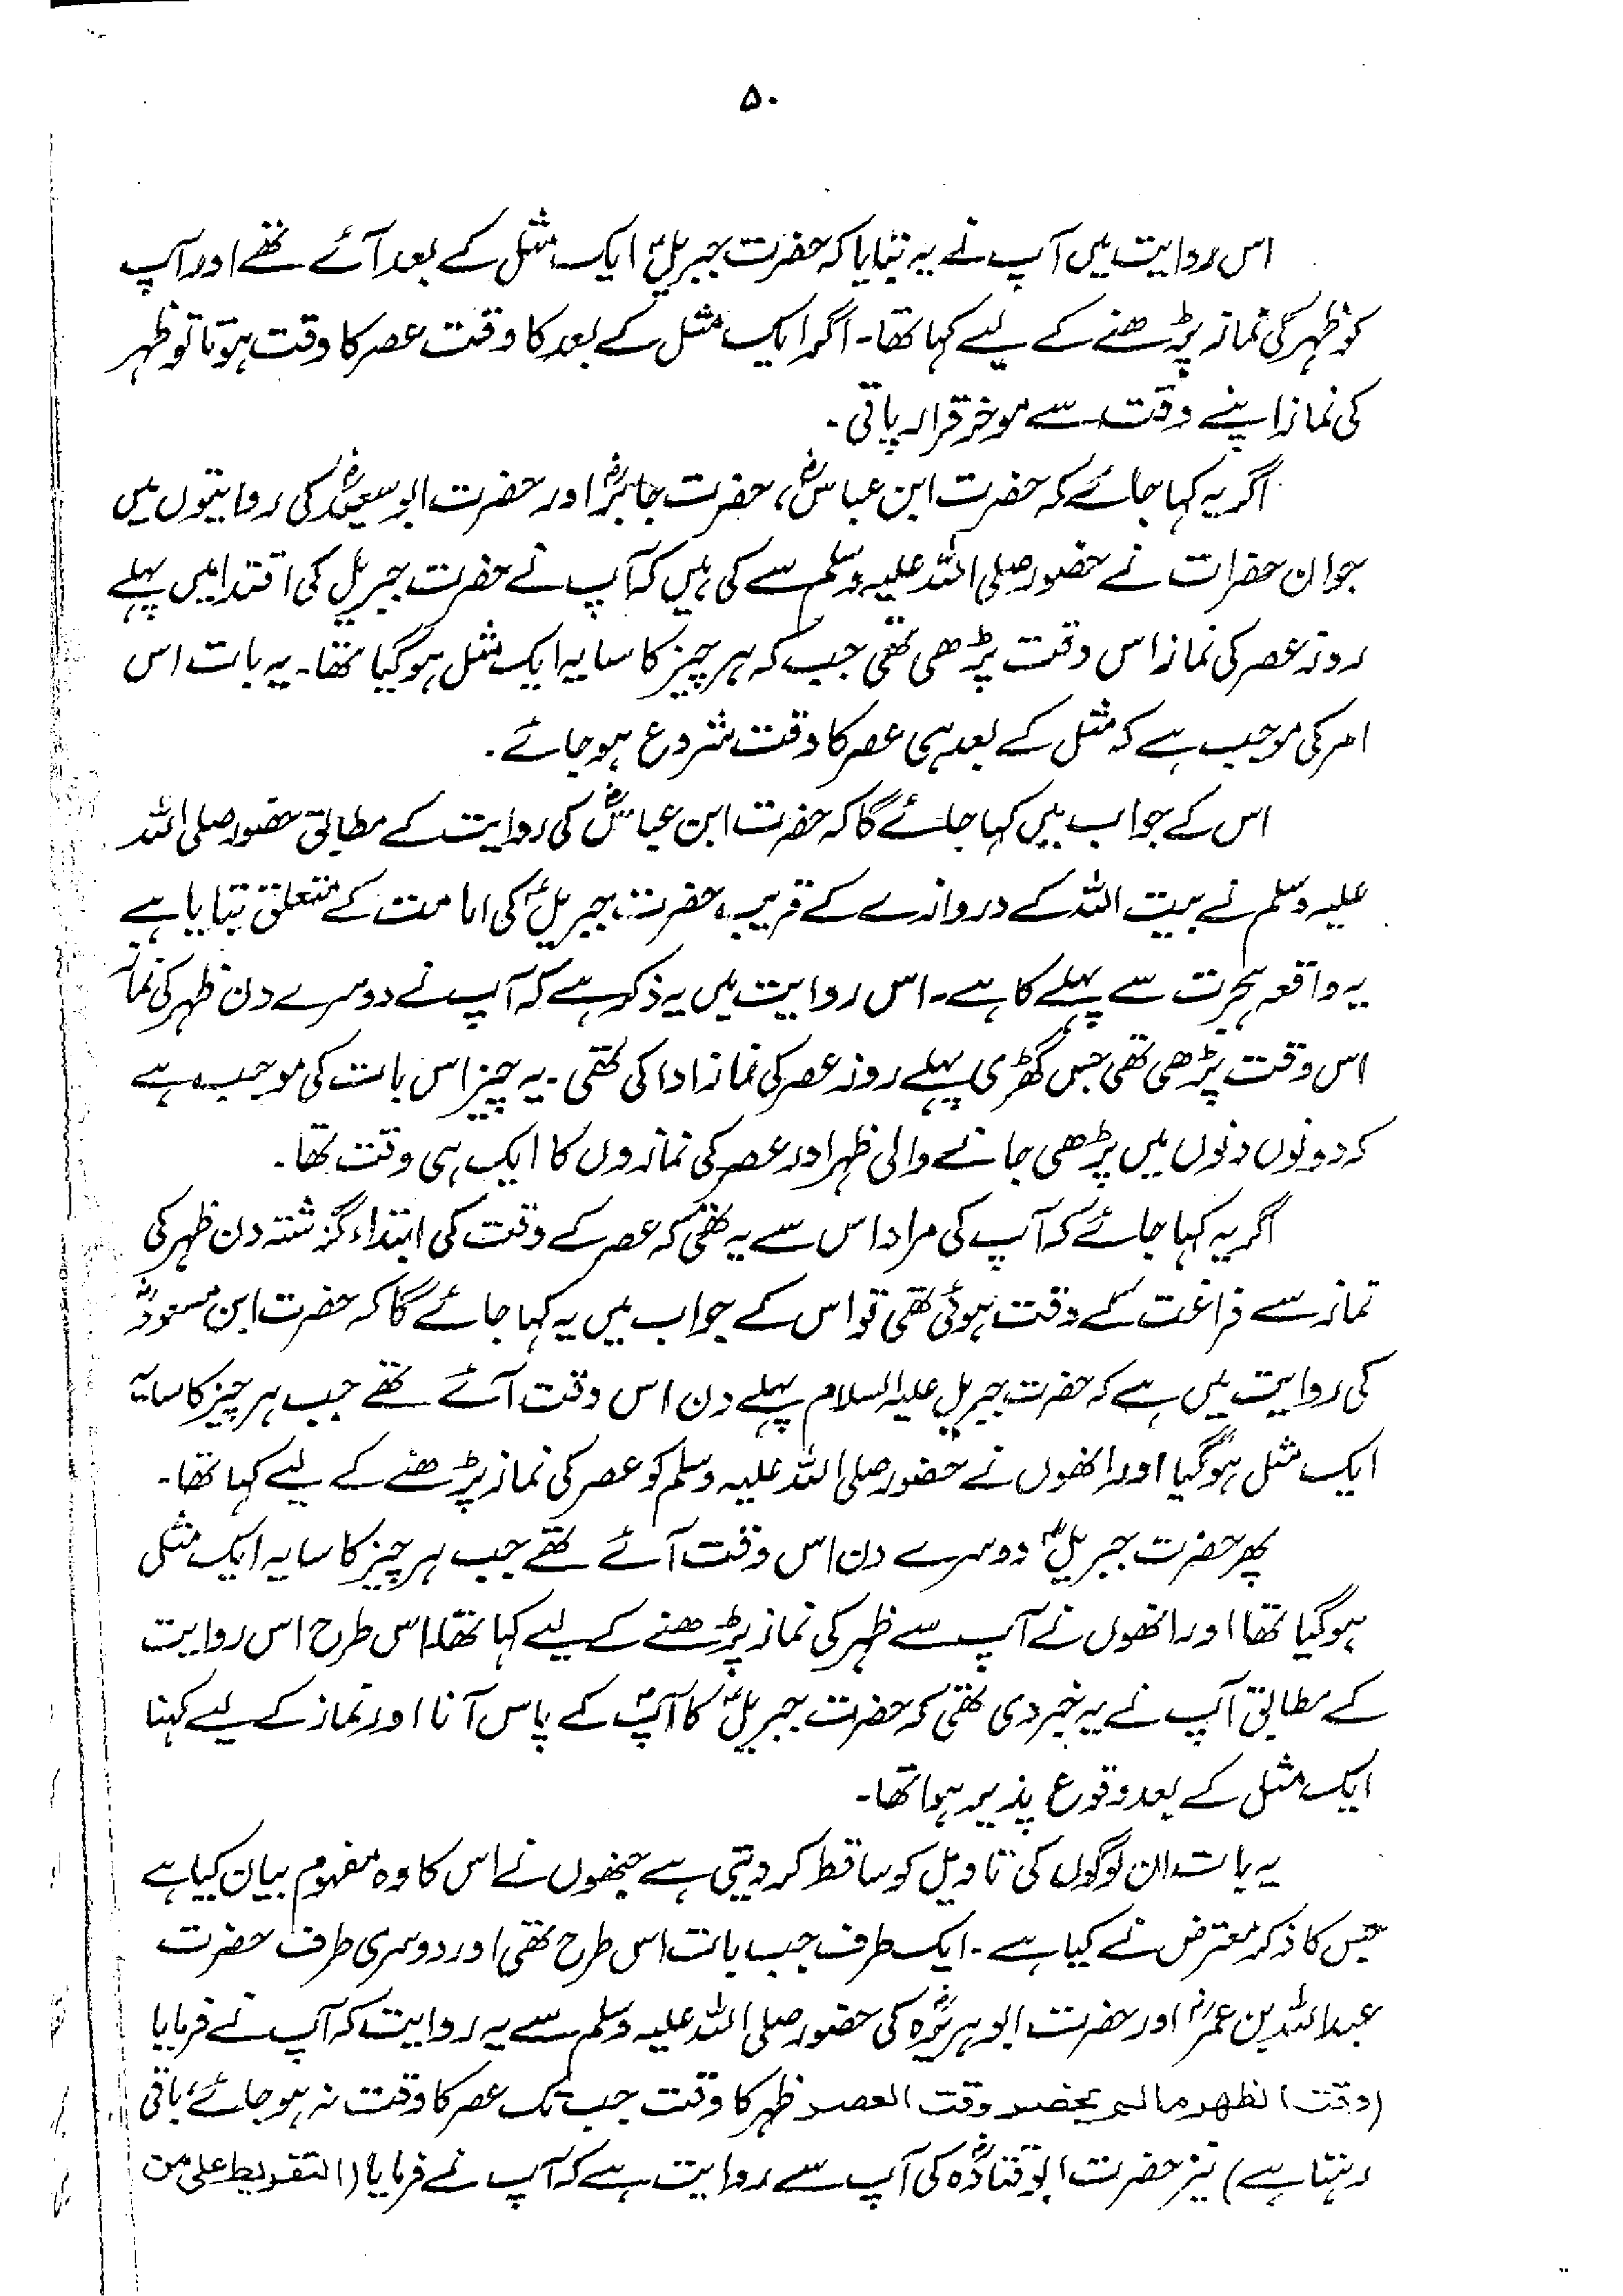 ۵۰
اس روایت میں آپ نے یہ بتایا کہ حضرت جبریلؑ ایک مثل کے بعد آئے تھے اور آپ
کو ظہر کی نماز پڑھنے کے لیے کہا تھا۔ اگر ایک مثل کے بعد کا وقت عصر کا وقت ہوتا تو ظہر
کی نماز اپنے وقت سے موخر قرار پاتی۔
اگر یہ کہا جائے کہ حضرت ابن عباسؓ، حضرت جابرؓ اور حضرت ابو سعیدؓ کی روایتوں میں
جو ان حضرات نے حضور صلی اللہ علیہ وسلم سے کی ہیں کہ آپ نے حضرت جبریل کی اقتدا میں پہلے
روز عصر کی نماز اس وقت پڑھی تھی جب کہ ہر چیز کا سایہ ایک مثل ہو گیا تھا۔ یہ بات اس
امر کی موجب ہے کہ مثل کے بعد ہی عصر کا وقت شروع ہو جائے۔
اس کے جواب میں کہا جائے گا کہ حضرت ابن عباسؓ کی روایت کے مطابق حضور صلی اللہ
علیہ وسلم نے بیت اللہ کے دروازے کے قریب حضرت جبریلؑ کی امامت کے متعلق بتایا ہے
یہ واقعہ ہجرت سے پہلے کا ہے۔ اس روایت میں یہ ذکر ہے کہ آپ نے دوسرے دن ظہر کی نماز
اس وقت پڑھی تھی جس گھڑی پہلے روز عصر کی نماز ادا کی تھی۔ یہ چیز اس بات کی موجب ہے
کہ دونوں دنوں میں پڑھی جانے والی ظہر اور عصر کی نمازوں کا ایک ہی وقت تھا۔
اگر یہ کہا جائے کہ آپ کی مراد اس سے یہ تھی کہ عصر کے وقت کی ابتداء گزشتہ دن ظہر کی
نماز سے فراغت کے وقت ہوئی تھی تو اس کے جواب میں یہ کہا جائے گا کہ حضرت ابن مسعودؓ
کی روایت میں ہے کہ حضرت جبریل علیہ السلام پہلے دن اس وقت آئے تھے جب ہر چیز کا سایہ
ایک مثل ہو گیا اور انھوں نے حضور صلی اللہ علیہ وسلم کو عصر کی نماز پڑھنے کے لیے کہا تھا۔
پھر حضرت جبریلؑ دوسرے دن اس وقت آئے تھے جب ہر چیز کا سایہ ایک مثل
ہو گیا تھا اور انھوں نے آپ سے ظہر کی نماز پڑھنے کے لیے کہا تھا۔ اس طرح اس روایت
کے مطابق آپ نے یہ خبر دی تھی کہ حضرت جبریلؑ کا آپؐ کے پاس آنا اور نماز کے لیے کہنا
ایک مثل کے بعد وقوع پذیر ہوا تھا۔
یہ بات ان لوگوں کی تاویل کو ساقط کر دیتی ہے جنھوں نے اس کا وہ مفہوم بیان کیا ہے
جس کا ذکر معترض نے کیا ہے۔ ایک طرف جب بات اس طرح تھی اور دوسری طرف حضرت
عبداللہ بن عمرؓ اور حضرت ابو ہریرؓہ کی حضور صلی اللہ علیہ وسلم سے یہ روایت کہ آپ نے فرمایا
(وقت الظهر مالم يحضر وقت العصر ظہر کا وقت جب تک عصر کا وقت نہ ہو جائے باقی
رہتا ہے) نیز حضرت ابو قتادؓہ کی آپ سے روایت ہے کہ آپ نے فرمایا (التفريط على من